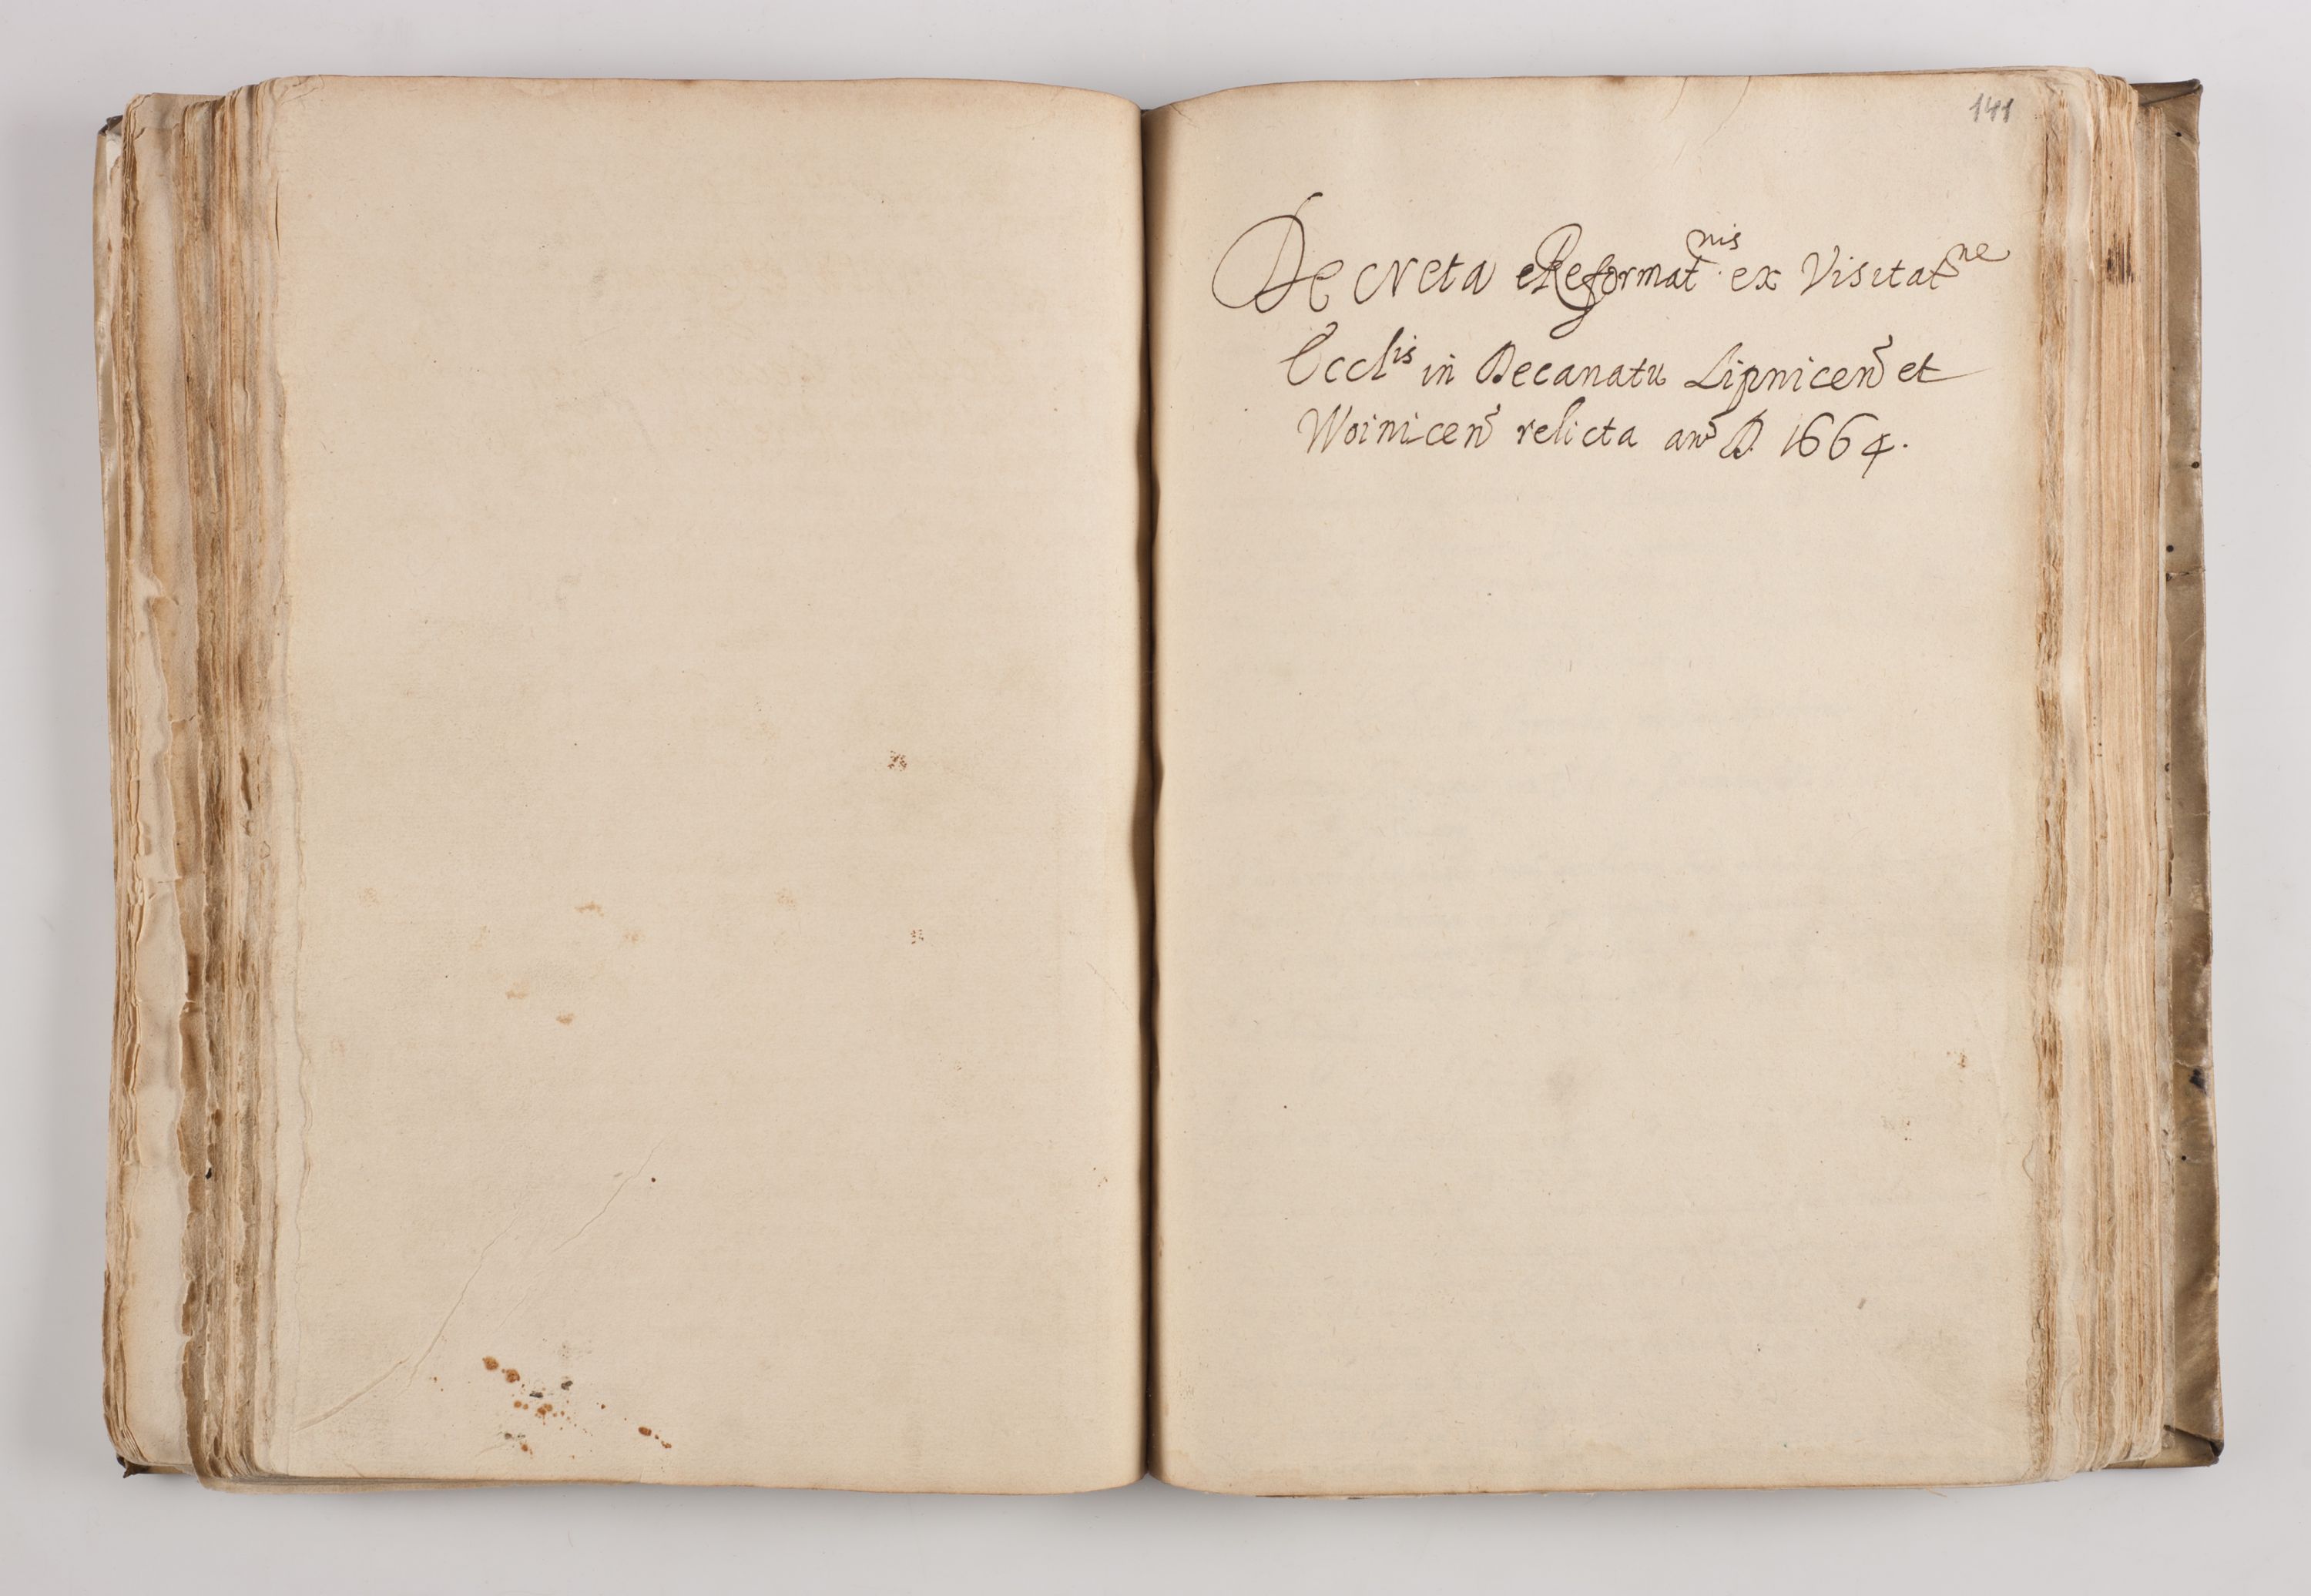 141
Decreta Reformat^nis ex Visitat^ne
Eccl^is in Decanatu Lipnicen et
Woinicen relicta an̄o D. 1664.